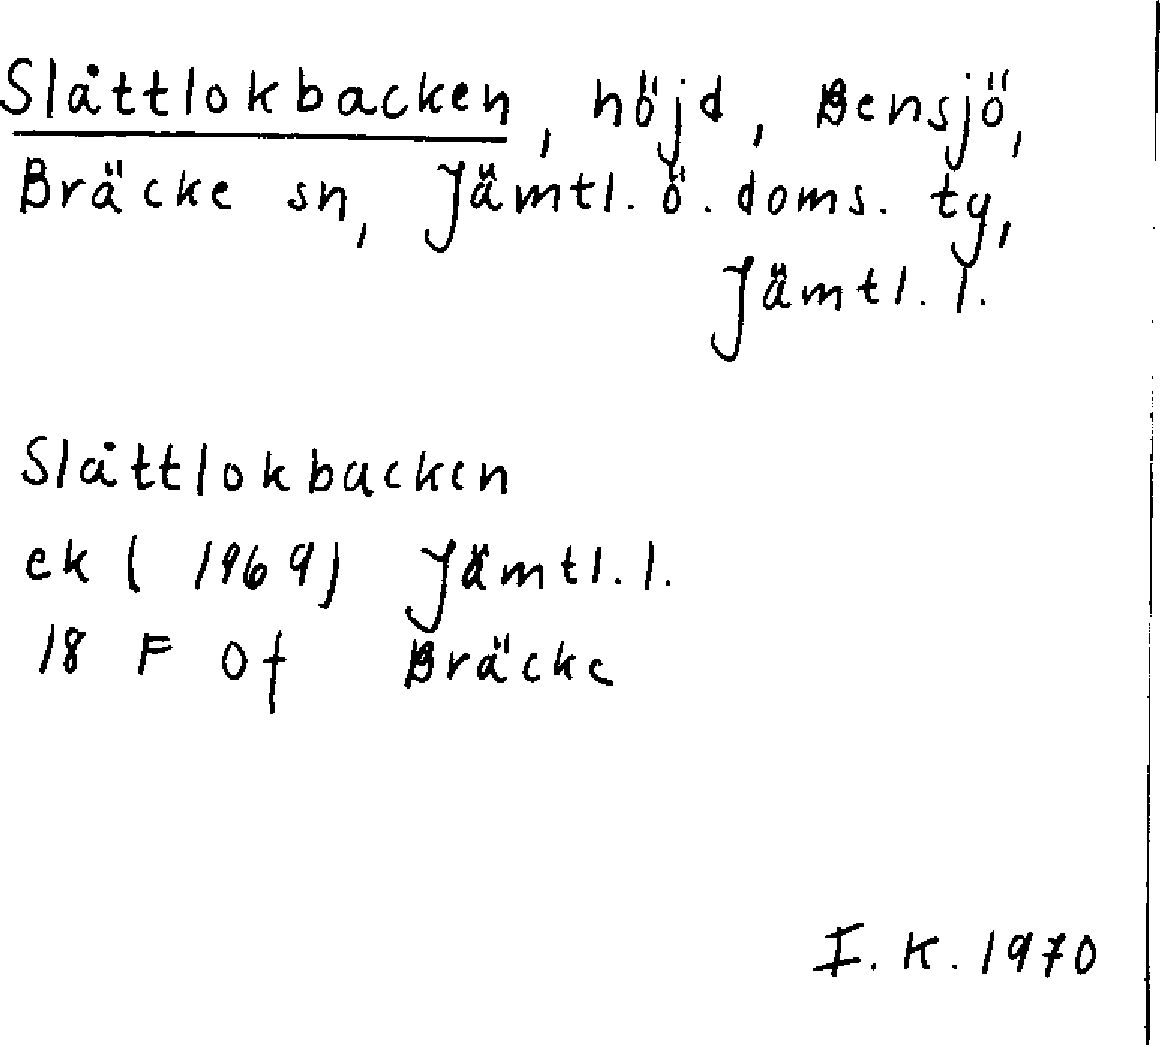 Slåttlokbacken, höjd, Bensjö,
Bräcke sn, Jämtl. ö. doms. tg,
Jämtl. l.
Slåttlokbacken
ek (1969) Jämtl. l.
18 F Of Bräcke
I. K. 1970